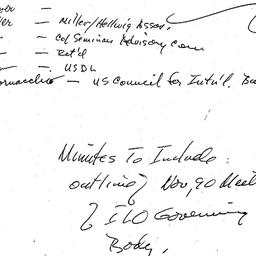 — Miller/Hellwig Assoc.
— Cof Seminars Advisory Com
— Ret'd
— USDL
— US Council for Int'l. Bu
Minutes To Include:
outline of Nov, 90 Meet
of ILO Governing
Body,